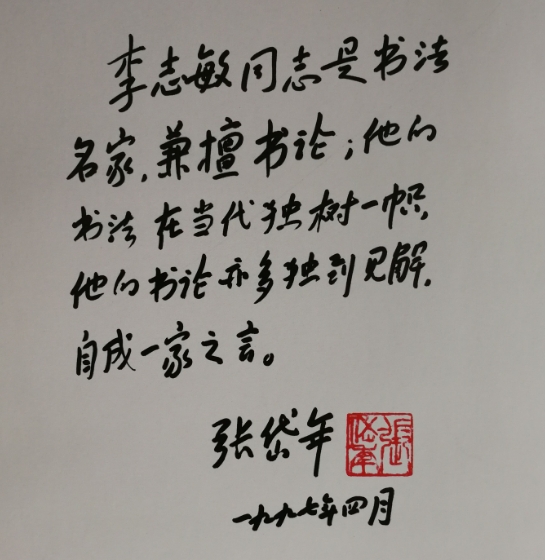 李志敏同志是书法
名家，兼擅书论；他的
书法在当代独树一帜，
他的书论亦多独到见解，
自成一家之言。
张岱年
张岱年
一九九七年四月